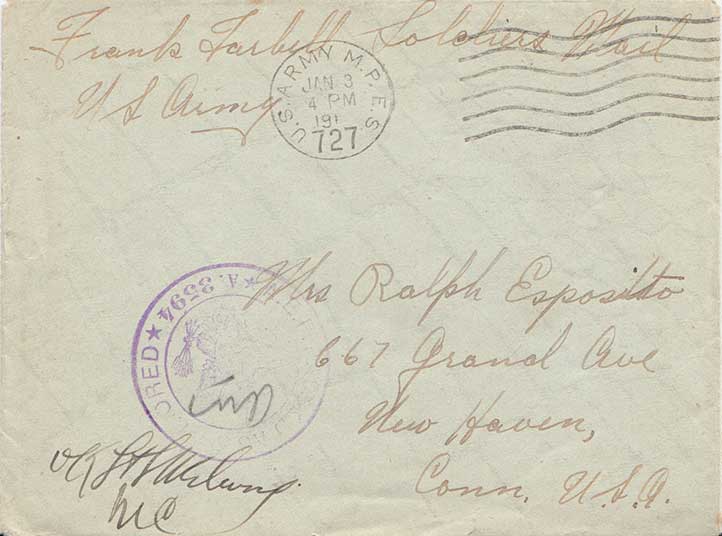 Frank Tarbell Soldiers Mail
US Army
U.S. ARMY M.P.E.S.
JAN 3
4 PM
191
727
A. 3594
Mrs Ralph Esposito
667 Grand Ave
New Haven,
Conn. U.S.A.
OK
MC